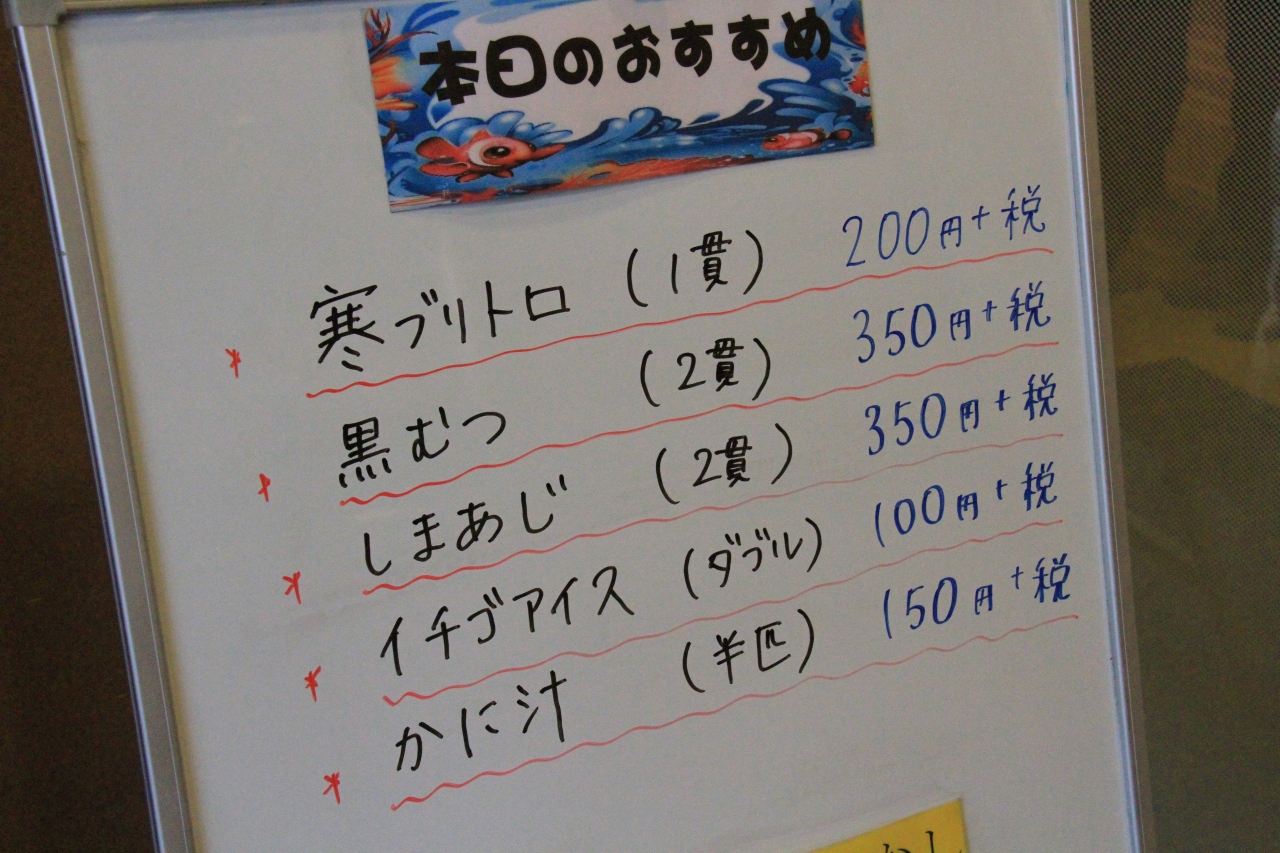 本日のおすすめ
* 寒ブリトロ (1貫) 200円+税
* 黒むつ (2貫) 350円+税
* しまあじ (2貫) 350円+税
* イチゴアイス (ダブル) 100円+税
* かに汁 (半匹) 150円+税